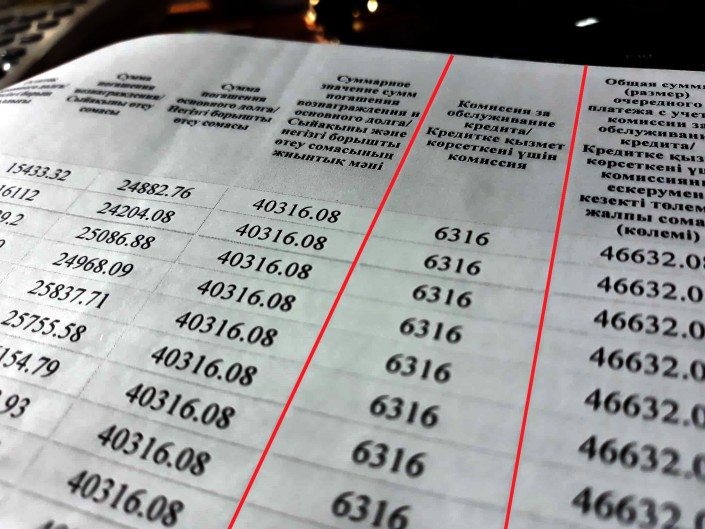 Сумма
погашения
вознаграждения/
Сыйақыны өтеу
сомасы
Сумма
погашения
основного долга/
Негізгі борышты
өтеу сомасы
Суммарное
значение сумм
погашения
вознаграждения и
основного долга/
Сыйақыны және
негізгі борышты
өтеу сомасының
жиынтық мәні
Комиссия за
обслуживание
кредита/
Кредитке қызмет
көрсеткені үшін
комиссия
Общая сумм
(размер)
очередного
платежа с учет
комиссии за
обслуживан
кредита/
Кредитке қыз
көрсеткені үш
комиссиян
ескерумен
кезекті төлем
жалпы сома
(көлемі)
15433.32 24882.76 40316.08 6316 46632.08
16112 24204.08 40316.08 6316 46632.0
9.2 25086.88 40316.08 6316 46632.0
24968.09 40316.08 6316 46632.0
25837.71 40316.08 6316 46632.0
25755.58 40316.08 6316 46632.0
154.79 40316.08 6316 46632.0
.93 40316.08 6316 46632.0
40316.08
40316.08